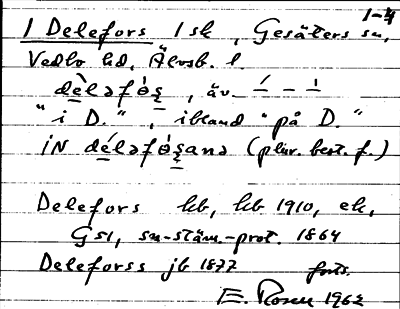 1-4
1 Delefors 1 sk, Gesäters sn,
Vedbo hd, Älvsb. l.
dèləfɷ́ş, äv. –́ – –̀
"i D.", ibland "på D."
iN déləfɷ́şanə (plur. best. f.)
Delefors kb, hb 1910, ek,
GS1, sn-stäm.-prot. 1864
Delefors jb 1877 forts.
E. Rosen 1962